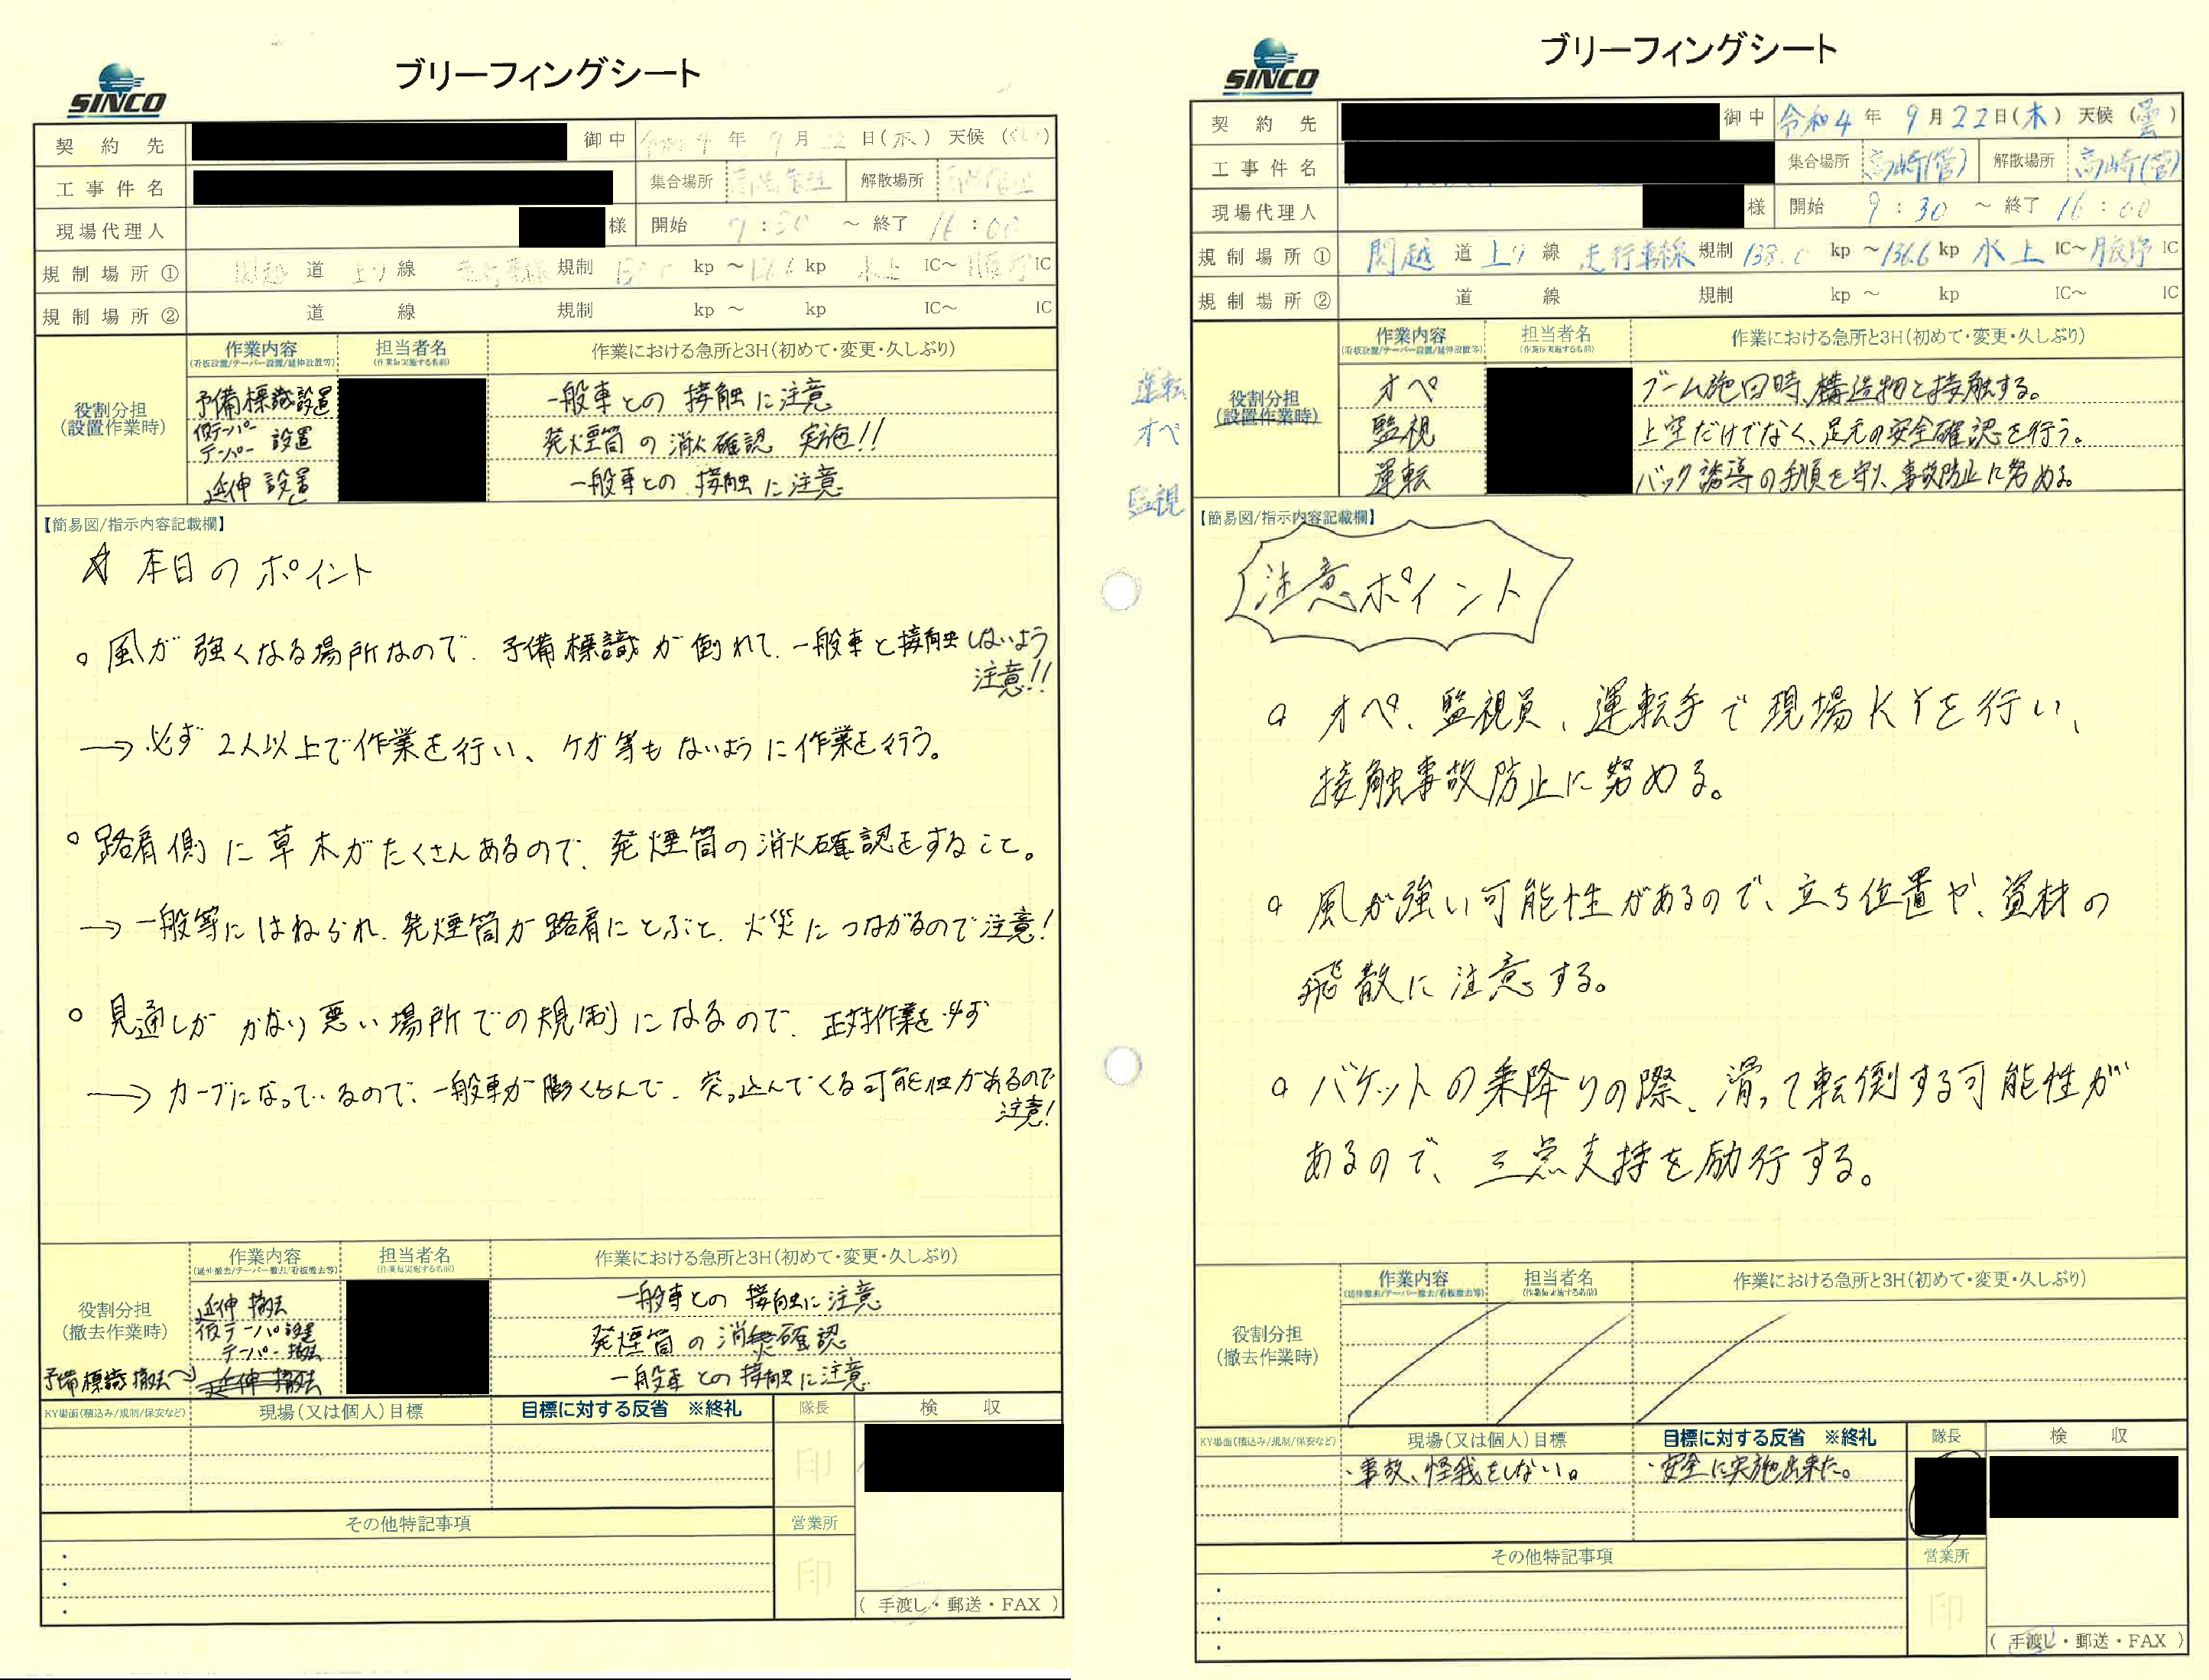 ブリーフィングシート
SINCO
契約先 御中 令和4年 9月22日(木) 天候(くもり)
工事件名 集合場所 解散場所
現場代理人 様 開始 9:30 ～ 終了 16:00
規制場所① 関越道 上り線 走行車線 規制 kp ～ kp 水上 IC～ IC
規制場所② 道 線 規制 kp ～ kp IC～ IC
役割分担
(設置作業時)
作業内容 担当者名 作業における急所と3H(初めて・変更・久しぶり)
(看板設置/テーパー設置/延伸設置等) (作業毎実施する名前)
予備標識設置 一般車との接触に注意
仮テーパー
テーパー 設置 発煙筒の消火確認 実施!!
延伸設置 一般車との接触に注意
【簡易図/指示内容記載欄】
☆ 本日のポイント
○ 風が強くなる場所なので、予備標識が倒れて、一般車と接触しないよう
注意!!
→ 必ず2人以上で作業を行い、ケガ等もないように作業を行う。
○ 路肩側に草木がたくさんあるので、発煙筒の消火確認をすること。
→ 一般等にはねられ、発煙筒が路肩にとぶと、火災につながるので注意!
○ 見通しがかなり悪い場所での規制になるので、正対作業を必ず
→ カーブになっているので、一般車が膨くらんで、突っ込んでくる可能性があるので
注意!
役割分担
(撤去作業時)
作業内容 担当者名 作業における急所と3H(初めて・変更・久しぶり)
(延伸撤去/テーパー撤去/看板撤去等) (作業毎実施する名前)
延伸撤去 一般車との接触に注意
仮テーパ設置
テーパー撤去 発煙筒の消火確認
予備標識撤去→ 延伸撤去 一般車との接触に注意
KY場面(積込み/規制/保安など) 現場(又は個人)目標 目標に対する反省 ※終礼 隊長 検収
印
その他特記事項 営業所
・
・
・
印
(手渡し・郵送・FAX)
ブリーフィングシート
SINCO
契約先 御中 令和4年 9月22日(木) 天候(曇)
工事件名 集合場所 高崎(管) 解散場所 高崎(管)
現場代理人 様 開始 9:30 ～ 終了 16:00
規制場所① 関越道 上り線 走行車線 規制 138.0 kp ～136.6 kp 水上 IC～月夜野 IC
規制場所② 道 線 規制 kp ～ kp IC～ IC
運転
オペ
監視
役割分担
(設置作業時)
作業内容 担当者名 作業における急所と3H(初めて・変更・久しぶり)
(看板設置/テーパー設置/延伸設置等) (作業毎実施する名前)
オペ ブーム旋回時、構造物と接触する。
監視 上空だけでなく、足元の安全確認を行う。
運転 バック誘導の手順を守り、事故防止に努める。
【簡易図/指示内容記載欄】
注意ポイント
○ オペ、監視員、運転手で現場KYを行い、
接触事故防止に努める。
○ 風が強い可能性があるので、立ち位置や、資材の
飛散に注意する。
○ バケットの乗降りの際、滑って転倒する可能性が
あるので、三点支持を励行する。
役割分担
(撤去作業時)
作業内容 担当者名 作業における急所と3H(初めて・変更・久しぶり)
(延伸撤去/テーパー撤去/看板撤去等) (作業毎実施する名前)
KY場面(積込み/規制/保安など) 現場(又は個人)目標 目標に対する反省 ※終礼 隊長 検収
・事故、怪我をしない。 ・安全に実施出来た。
その他特記事項 営業所
・
・
・
印
(手渡し・郵送・FAX)